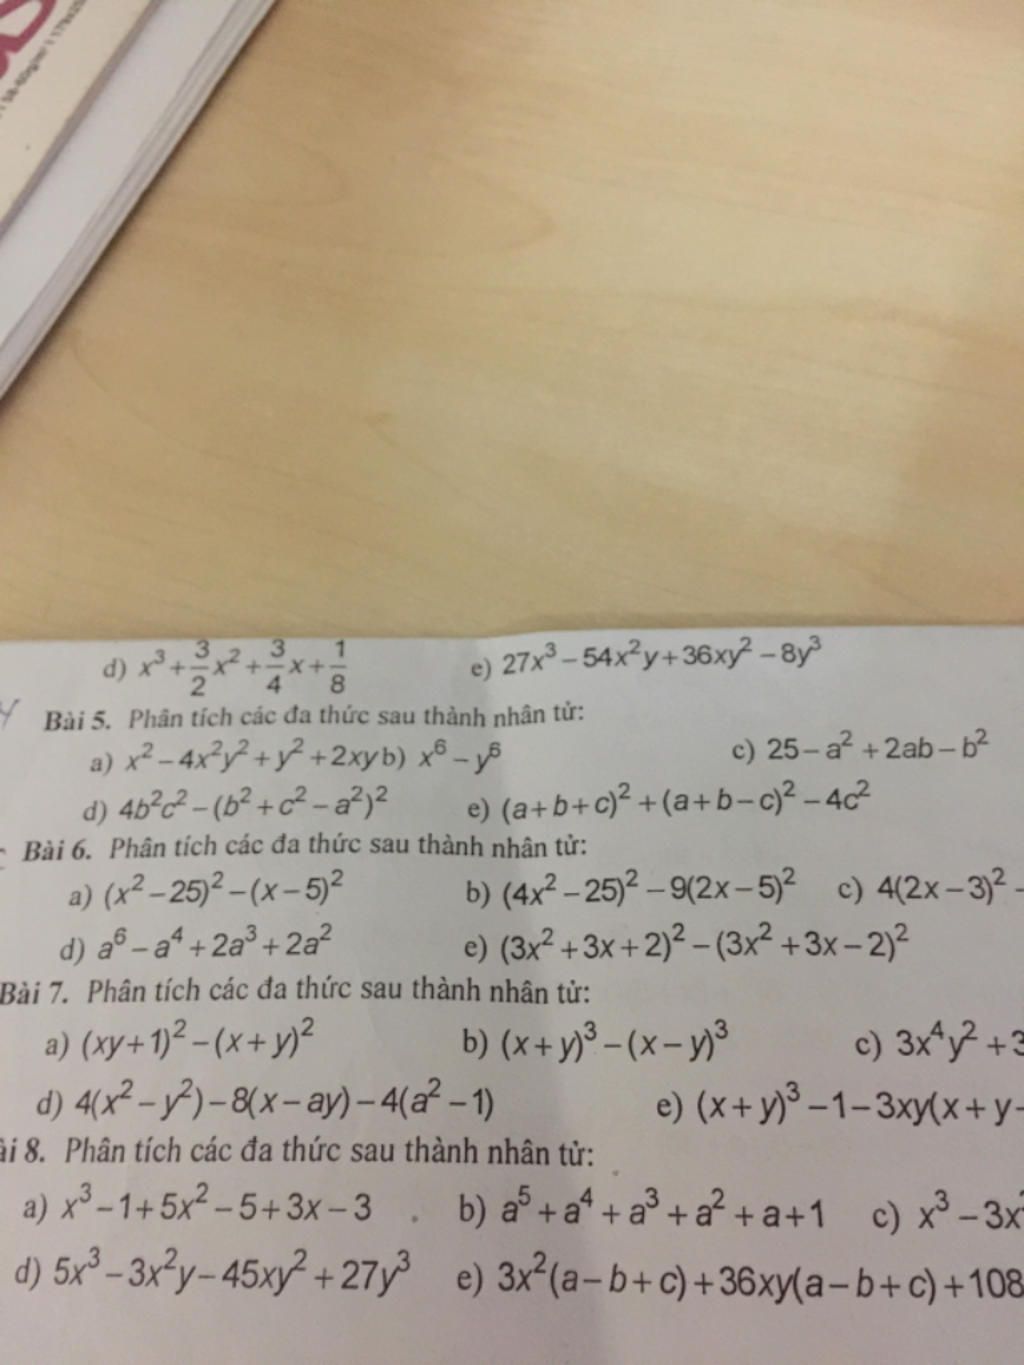 d) x³ + 3/2 x² + 3/4 x + 1/8 e) 27x³ – 54x²y + 36xy² – 8y³
Bài 5. Phân tích các đa thức sau thành nhân tử:
a) x² – 4x²y² + y² + 2xy b) x⁶ – y⁶ c) 25 – a² + 2ab – b²
d) 4b²c² – (b² + c² – a²)² e) (a + b + c)² + (a + b – c)² – 4c²
Bài 6. Phân tích các đa thức sau thành nhân tử:
a) (x² – 25)² – (x – 5)² b) (4x² – 25)² – 9(2x – 5)² c) 4(2x – 3)² –
d) a⁶ – a⁴ + 2a³ + 2a² e) (3x² + 3x + 2)² – (3x² + 3x – 2)²
Bài 7. Phân tích các đa thức sau thành nhân tử:
a) (xy + 1)² – (x + y)² b) (x + y)³ – (x – y)³ c) 3x⁴y² + 3
d) 4(x² – y²) – 8(x – ay) – 4(a² – 1) e) (x + y)³ – 1 – 3xy(x + y –
ài 8. Phân tích các đa thức sau thành nhân tử:
a) x³ – 1 + 5x² – 5 + 3x – 3 b) a⁵ + a⁴ + a³ + a² + a + 1 c) x³ – 3x
d) 5x³ – 3x²y – 45xy² + 27y³ e) 3x²(a – b + c) + 36xy(a – b + c) + 108